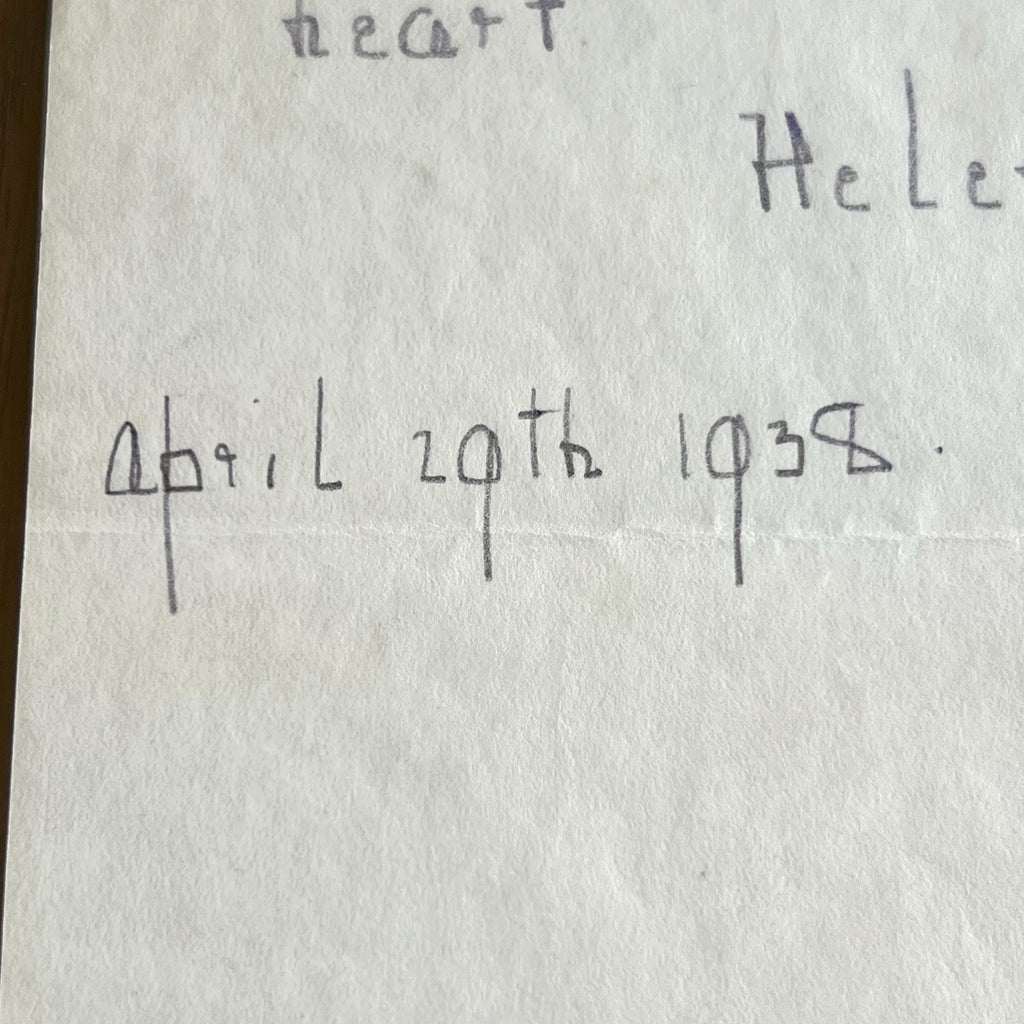 heart
Hele
april 29th 1938.